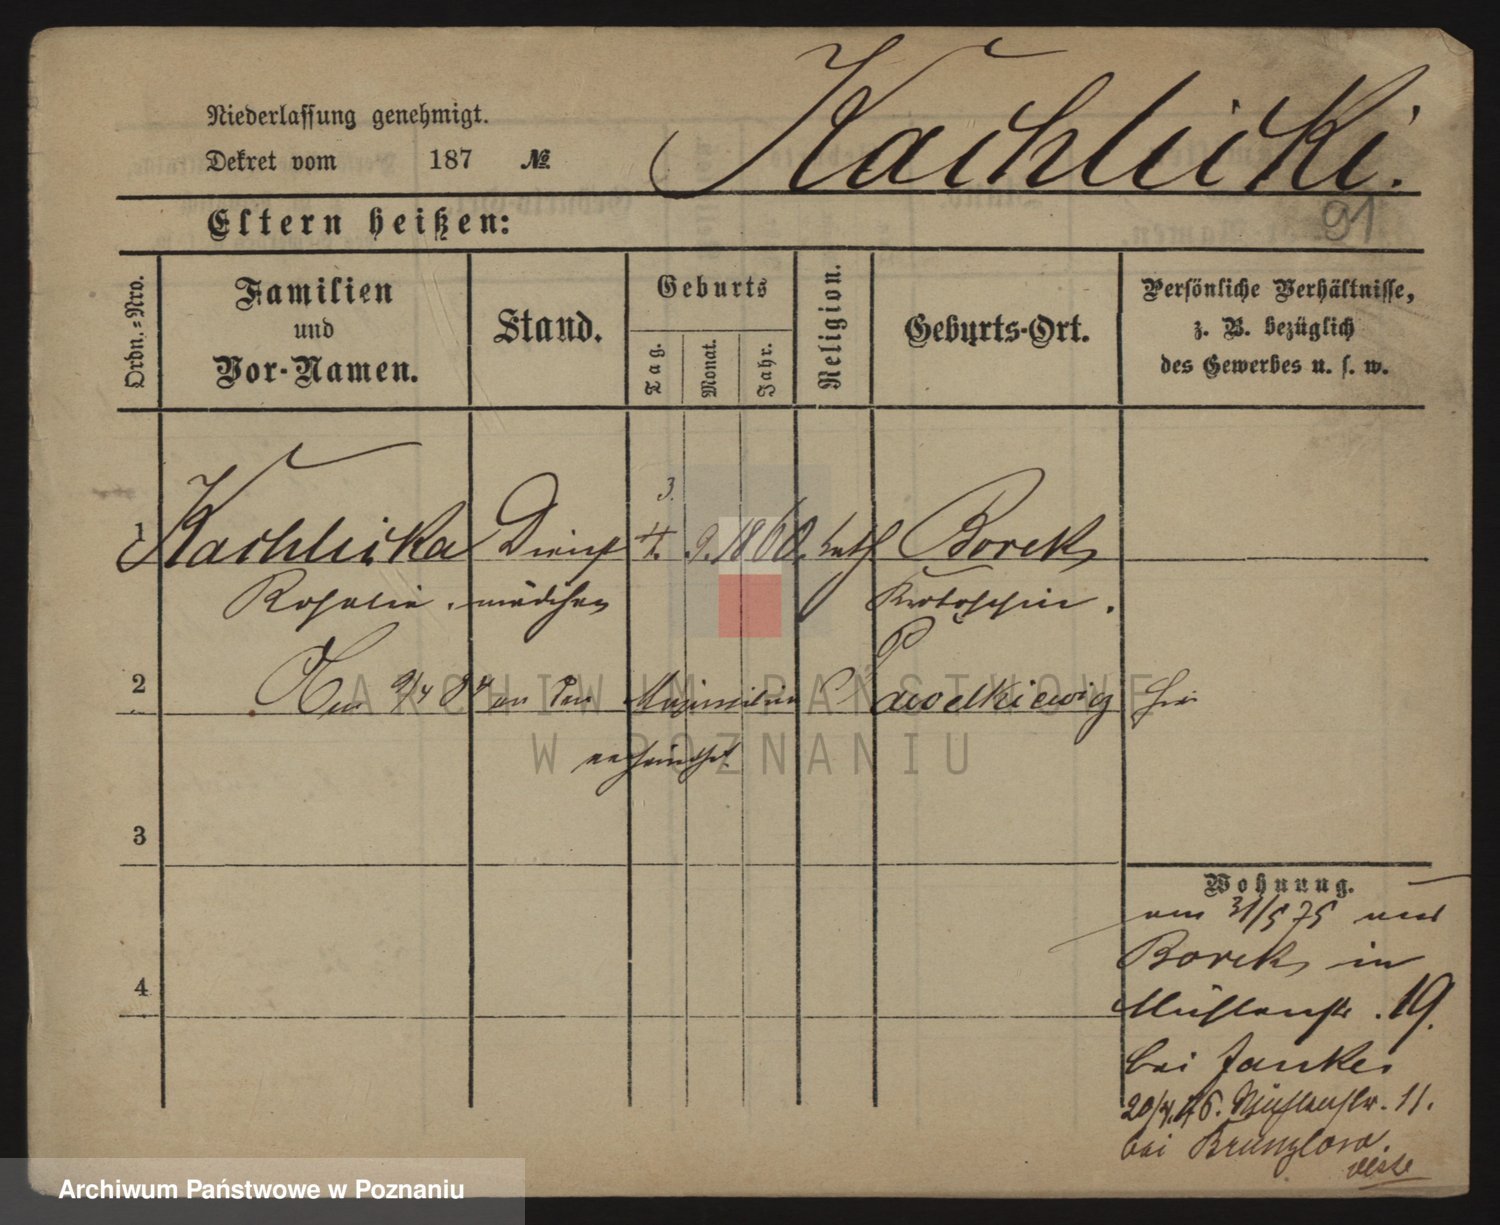 Kachlicki.
Niederlassung genehmigt.
Dekret vom 187 №
91
Eltern heißen:
Ordn.-Nro.
Familien
und
Vor-Namen.
Stand.
Geburts
Tag.
Monat.
Jahr.
Religion.
Geburts-Ort.
Persönliche Verhältnisse,
z. B. bezüglich
des Gewerbes u. s. w.
3.
1 Kachlicka Dienst 4. 9. 1860. kath Borek
Rosalie. mädchen Krotoschin.
2 9/4 84 an den Maximilian Pawelkiewicz hier
verheirathet.
3
Wohnung.
am 31/5 75 aus
Borek in
4
Mühlenstr. 19.
bei Janke.
20/4.76. Mühlenstr. 11.
bei
ARCHIWUM PAŃSTWOWE
W POZNANIU
Archiwum Państwowe w Poznaniu